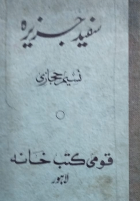 سفید جزیرہ
نسیم حجازی
قومی کتب خانہ
لاہور